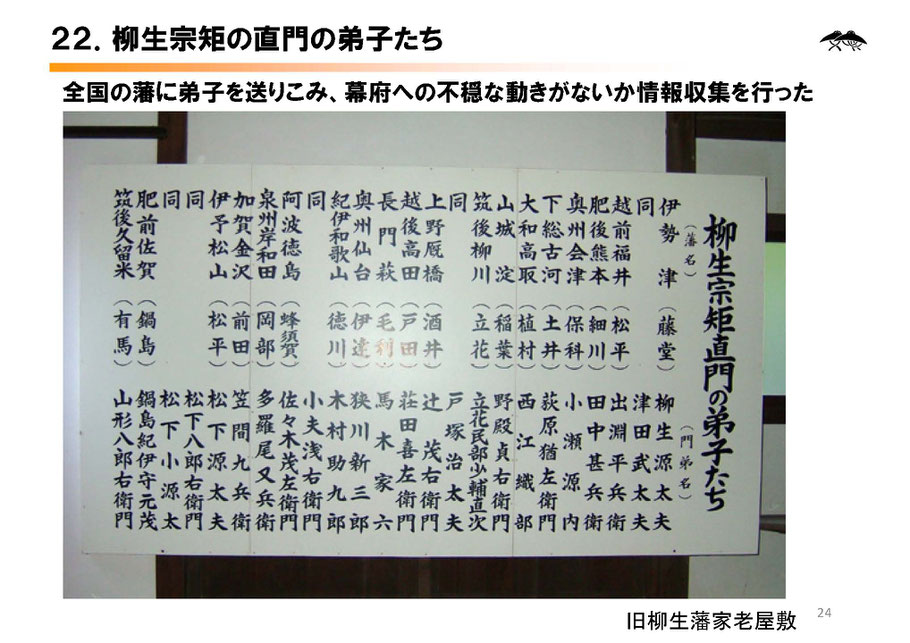 22．柳生宗矩の直門の弟子たち
全国の藩に弟子を送りこみ、幕府への不穏な動きがないか情報収集を行った
柳生宗矩直門の弟子たち
（藩名）（門弟名）
伊勢津（藤堂）柳生源太夫
同 津田武太夫
越前福井（松平）出淵平兵衛
肥後熊本（細川）田中甚兵衛
奥州会津（保科）小瀬源内
下総古河（土井）荻原猶左衛門
大和高取（植村）西江織部
山城淀（稲葉）野殿貞右衛門
筑後柳川（立花）立花民部少輔直次
同 戸塚治太夫
上野厩橋（酒井）辻茂右衛門
越後高田（戸田）荘田喜左衛門
長門萩（毛利）馬木家六
奥州仙台（伊達）狭川新三郎
紀伊和歌山（徳川）木村助九郎
同 小夫浅右衛門
阿波徳島（蜂須賀）佐々木茂左衛門
泉州岸和田（岡部）多羅尾又兵衛
加賀金沢（前田）笠間九兵衛
伊予松山（松平）松下源太夫
同 松下八郎右衛門
同 松下小源太
肥前佐賀（鍋島）鍋島紀伊守元茂
筑後久留米（有馬）山形八郎右衛門
旧柳生藩家老屋敷
24